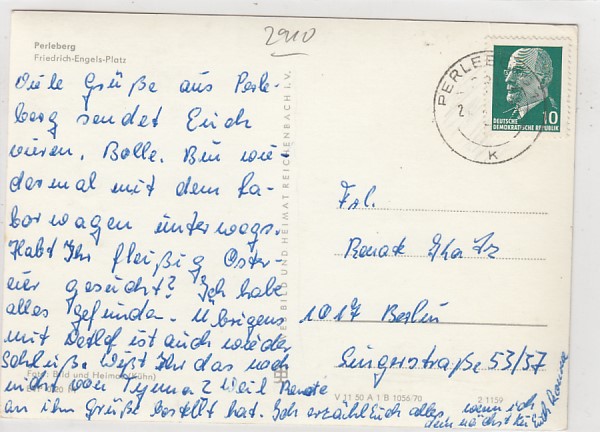 2910
Perleberg
Friedrich-Engels-Platz
Viele Grüße aus Perle-
berg sendet Euch
Bolle. Bin wie-
dermal mit dem La-
borwagen unterwegs.
Habt Ihr fleißig Oster-
eier gesucht? Ich habe
alles gefunden. Übrigens
mit Detlef ist auch wieder
Schluß. Wißt Ihr das noch
nicht von Weil Renate
an ihn Grüße bestellt hat. Ich erzähl Euch alles, wenn ich
demnächst
BILD UND HEIMAT REICHENBACH I. V.
Foto: Bild und Heimat (Kühn)
V 11 50 A 1 B 1056/70
2 1159
PERLEBE
2
K
10
DEUTSCHE
DEMOKRATISCHE REPUBLIK
Frl.
Renate
1017 Berlin
Singerstraße 53/57